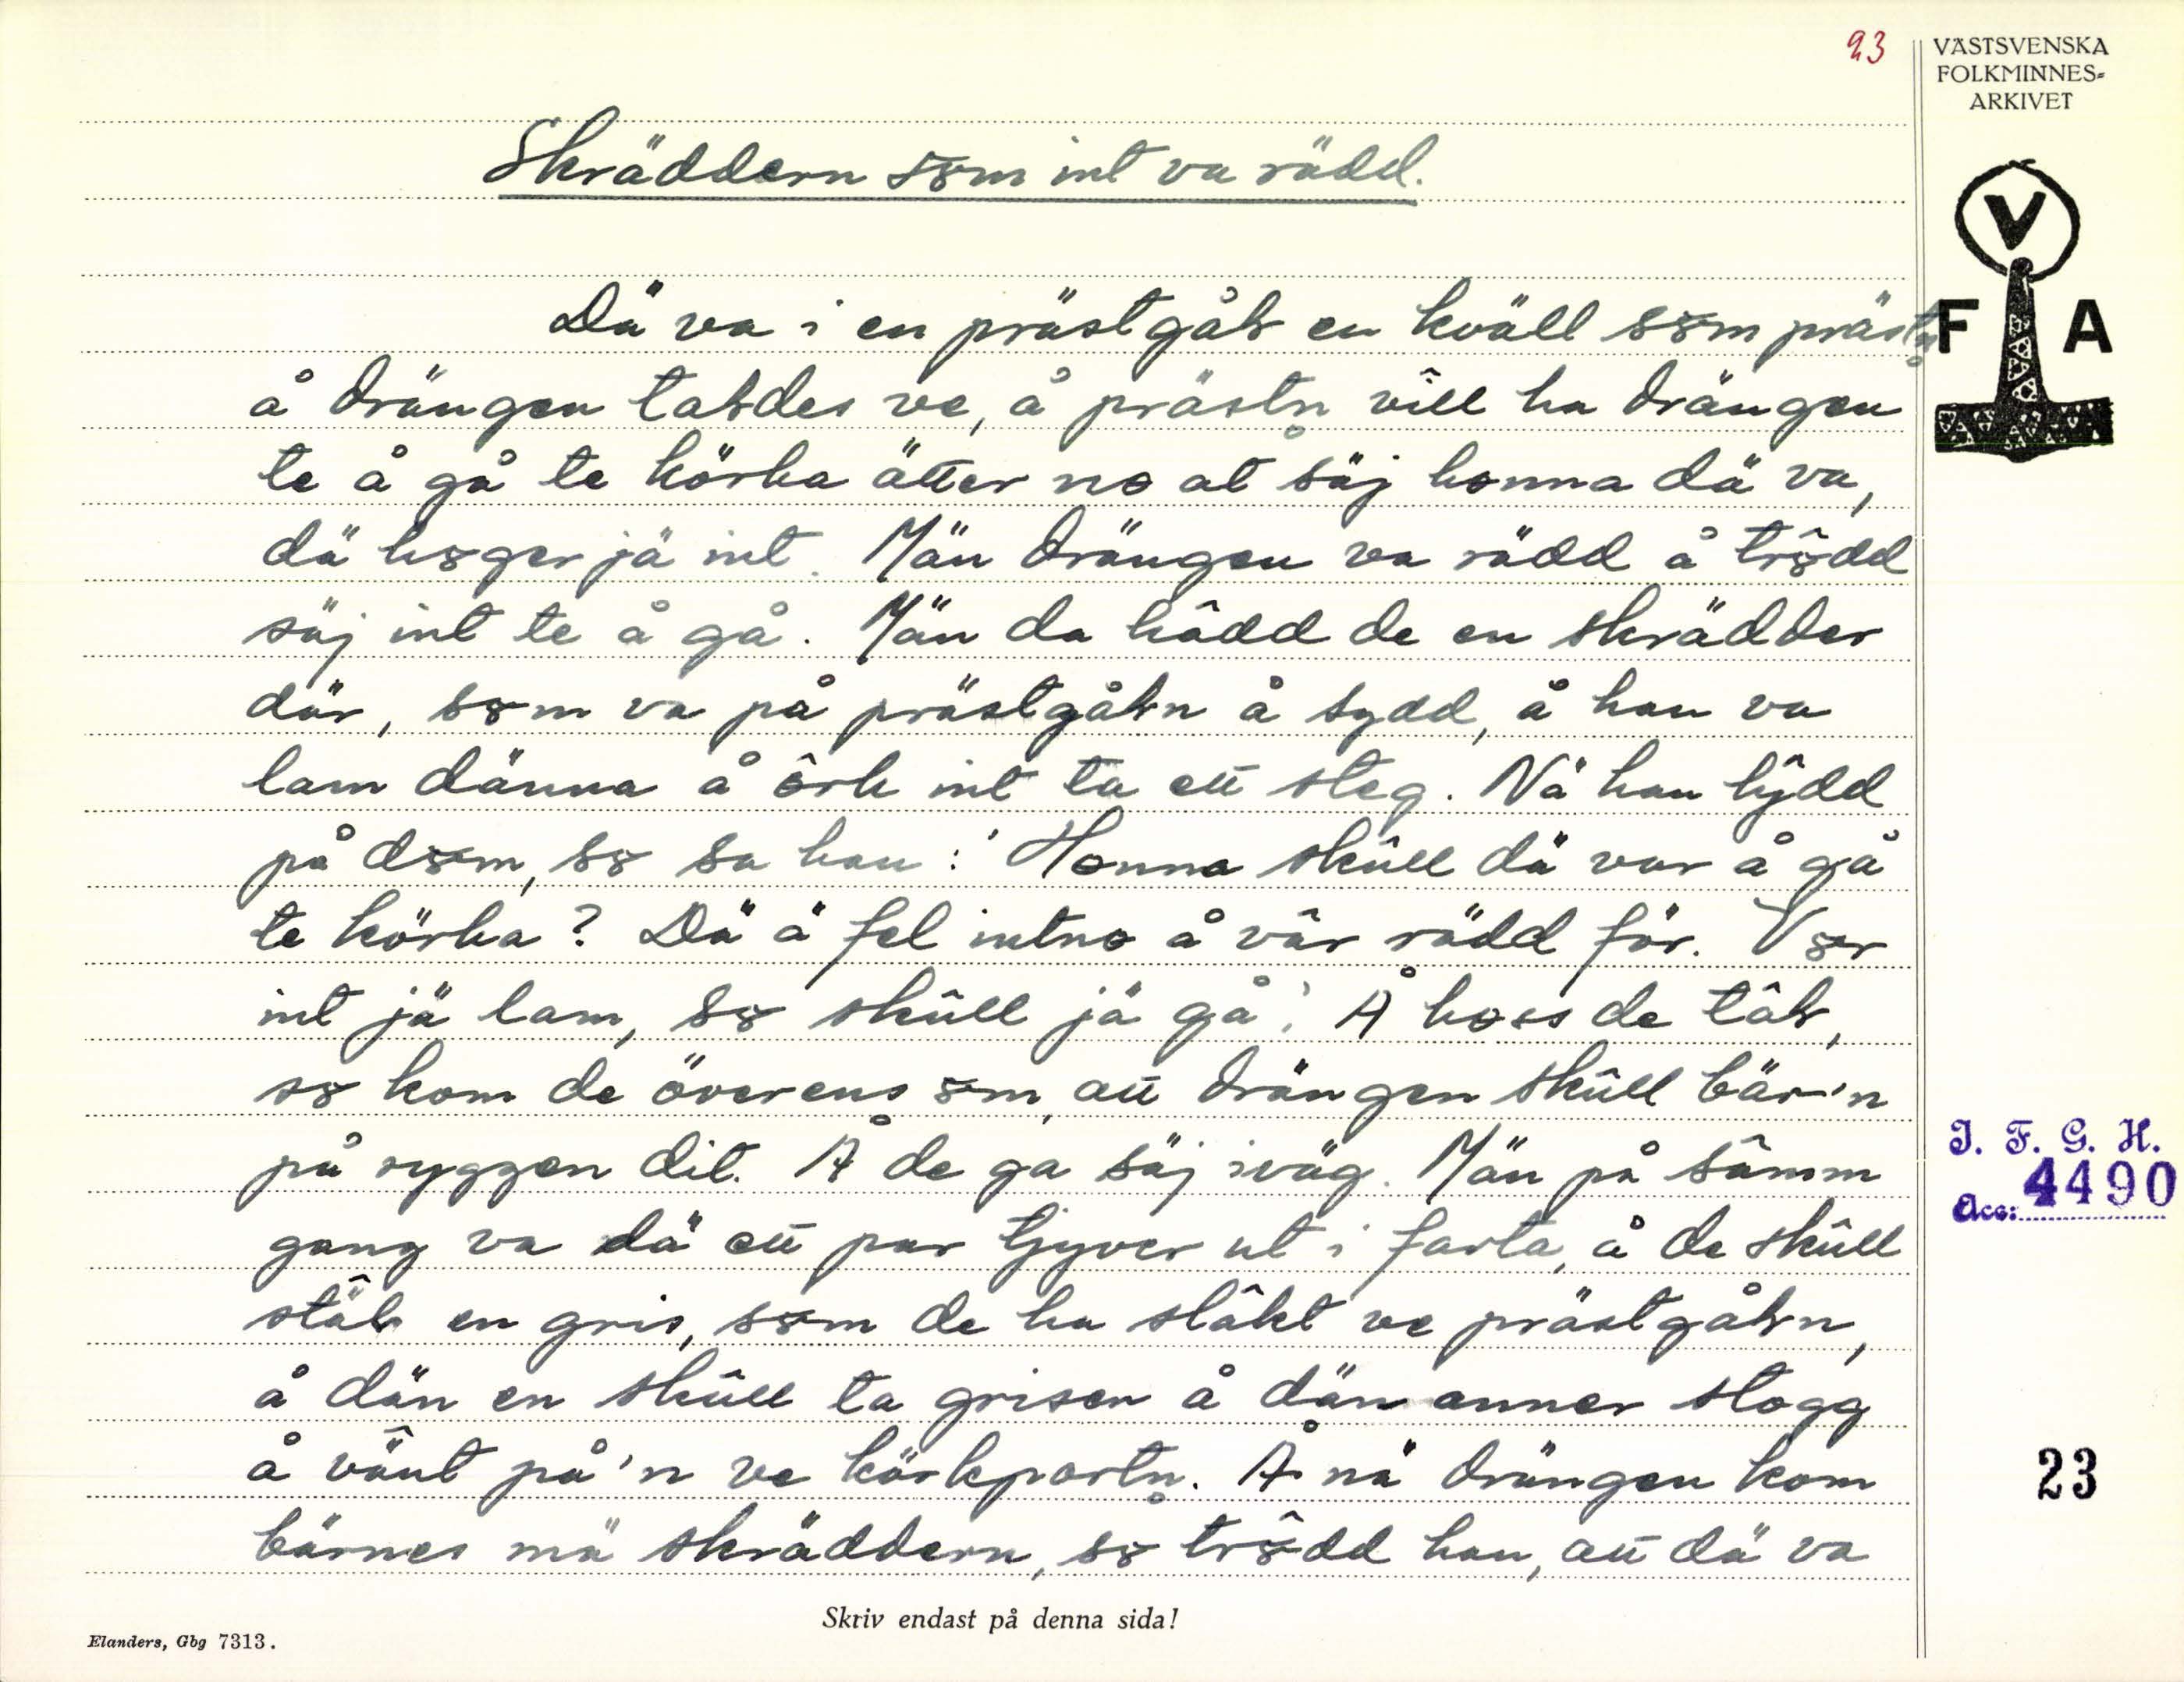 23
VÄSTSVENSKA
FOLKMINNES-
ARKIVET
Skräddern såm int va rädd.
V
F A
Dä va i en prästgåḷ en kväll såm prästn̥
å drängen taḷdes ve, å prästn̥ vîll ha drängen
te å gå te körka ätter no at säj honna dä va,
dä hoger jä int. Män drängen va rädd å trôdd
säj int te å gå. Män da hâdd de en skrädder
där, som va på prästgåḷn å sydd, å han va
lam dänna å ôrk int ta ett steg. Nä han lŷdd
på dom, so sa han: 'Honna skûll dä var å gå
te körka? Dä ä fel intno å vâr rädd för. Vor
int jä lam, so skûll jä gå.' Å hoss de tâḷ,
so kom de överens om, att drängen skûll bär'n
på ryggen dit. Å de ga säj iväg. Män på sâmm
gang va dä ett par tjyver ut i farta, å de skûll
stä̂ḷ en gris, som de ha slâkt ve prästgåḷn,
å dän en skûll ta grisen å dän anner stogg
å vä̂nt på'n ve körkportn̥. Å nä drängen kom
bärnes mä skräddern, so trôdd han, att dä va
J. F. G. H.
Acc: 4490
23
Skriv endast på denna sida!
Elanders, Gbg 7313.